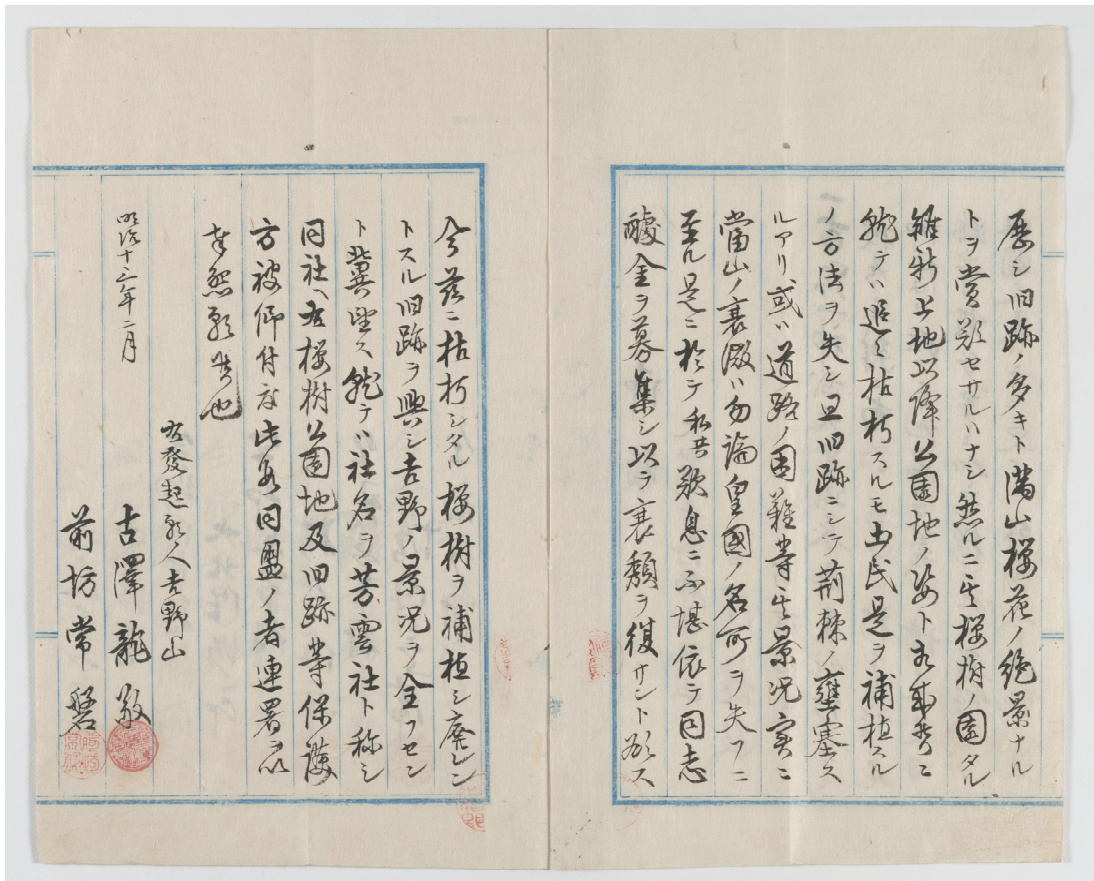 歴シ旧跡ノ多キト満山桜花ノ絶景ナル
トヲ賞歎セサルハナシ然ルニ其桜樹ノ園タル
維新上地以降公園地ノ姿ト相成候ニ
就テハ追々枯朽スルモ土民是ヲ補植スル
ノ方法ヲ失シ且旧跡ニシテ荊棘ノ壅塞ス
ルアリ或ハ道路ノ困難等其景况実ニ
當山ノ衰微ハ勿論皇國ノ名所ヲ失フニ
至ル是ニ於テ私共歎息ニ不堪依テ同志
醵金ヲ募集シ以テ衰頽ヲ復サント欲ス
今茲ニ枯朽シタル桜樹ヲ補植シ廃レン
トスル旧跡ヲ興シ吉野ノ景况ヲ全フセン
ト冀望ス就テハ社名ヲ芳雲社ト称シ
同社ヘ右桜樹公園地及旧跡等保護
方被仰付度此段同盟ノ者連署ヲ以
奉懇願候也
右發起願人吉野山
明治十三年二月
古澤龍敬
前坊常磐